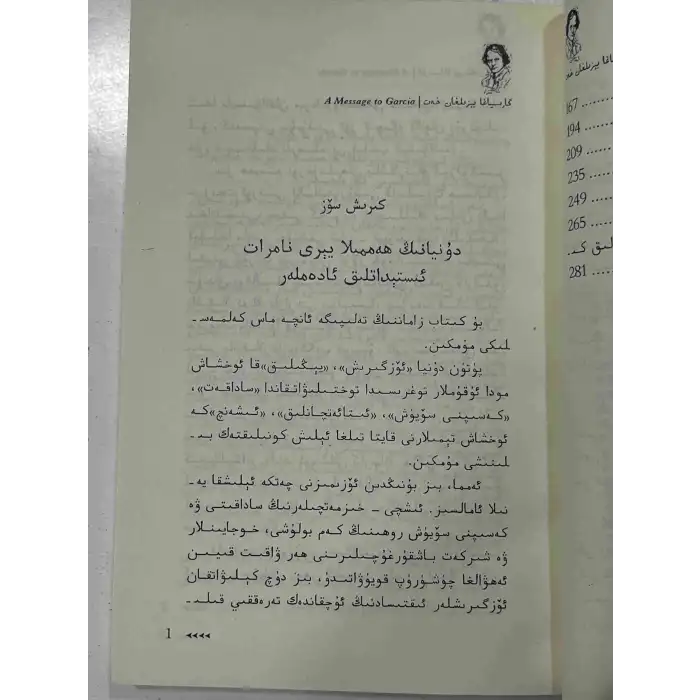 A Message to Garcia | گارسىياغا يېزىلغان خەت
كىرىش سۆز
دۇنيانىڭ ھەممىلا يېرى نامرات
ئىستېداتلىق ئادەملەر
بۇ كىتاب زاماننىڭ تەلىپىگە ئانچە ماس كەلمەس-
لىكى مۇمكىن.
پۈتۈن دۇنيا «ئۆزگىرىش»، «يېڭىلىق»قا ئوخشاش
مودا ئۇقۇملار توغرىسىدا توختىلىۋاتقاندا «ساداقەت»،
«كەسىپنى سۆيۈش»، «ئىتائەتچانلىق»، «ئىشەنچ»كە
ئوخشاش تېمىلارنى قايتا تىلغا ئېلىش كونىلىقتەك بى-
لىنىشى مۇمكىن.
ئەمما، بىز بۇنىڭدىن ئۆزىمىزنى چەتكە ئېلىشقا يە-
نىلا ئامالسىز. ئىشچى - خىزمەتچىلەرنىڭ ساداقىتى ۋە
كەسىپنى سۆيۈش روھىنىڭ كەم بولۇشى، خوجايىنلار
ۋە شىركەت باشقۇرغۇچىلىرىنى ھەر ۋاقىت قىيىن
ئەھۋالغا چۈشۈرۈپ قويۇۋاتىدۇ، بىز دۇچ كېلىۋاتقان
ئۆزگىرىشلەر ئىقتىسادنىڭ ئۇچقاندەك تەرەققىي قىلى-
1
گارسىياغا يېزىلغان خەت
167
194
209
235
249
265
281